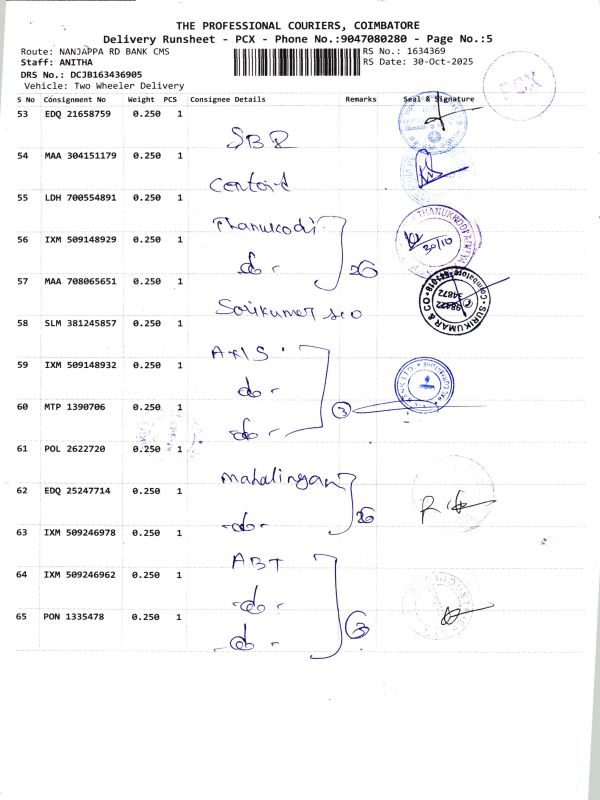 THE PROFESSIONAL COURIERS, COIMBATORE
Delivery Runsheet - PCX - Phone No.:9047080280 - Page No.:5
Route: NANJAPPA RD BANK CMS RS No.: 1634369
Staff: ANITHA RS Date: 30-Oct-2025
DRS No.: DCJB163436905
Vehicle: Two Wheeler Delivery
PCX
S No Consignment No Weight PCS Consignee Details Remarks Seal & Signature
53 EDQ 21658759 0.250 1 SBI
54 MAA 304151179 0.250 1
55 LDH 700554891 0.250 1 Thanukodi
56 IXM 509148929 0.250 1 -do- 30/10
57 MAA 708065651 0.250 1 Surikumar &co SURIKUMAR & CO
58 SLM 381245857 0.250 1 AXIS
59 IXM 509148932 0.250 1 -do-
60 MTP 1390706 0.250 1 -do- 3
61 POL 2622720 0.250 1 mahalingam
62 EDQ 25247714 0.250 1 -do-
63 IXM 509246978 0.250 1 ABT
64 IXM 509246962 0.250 1 -do-
65 PON 1335478 0.250 1 -do- 3